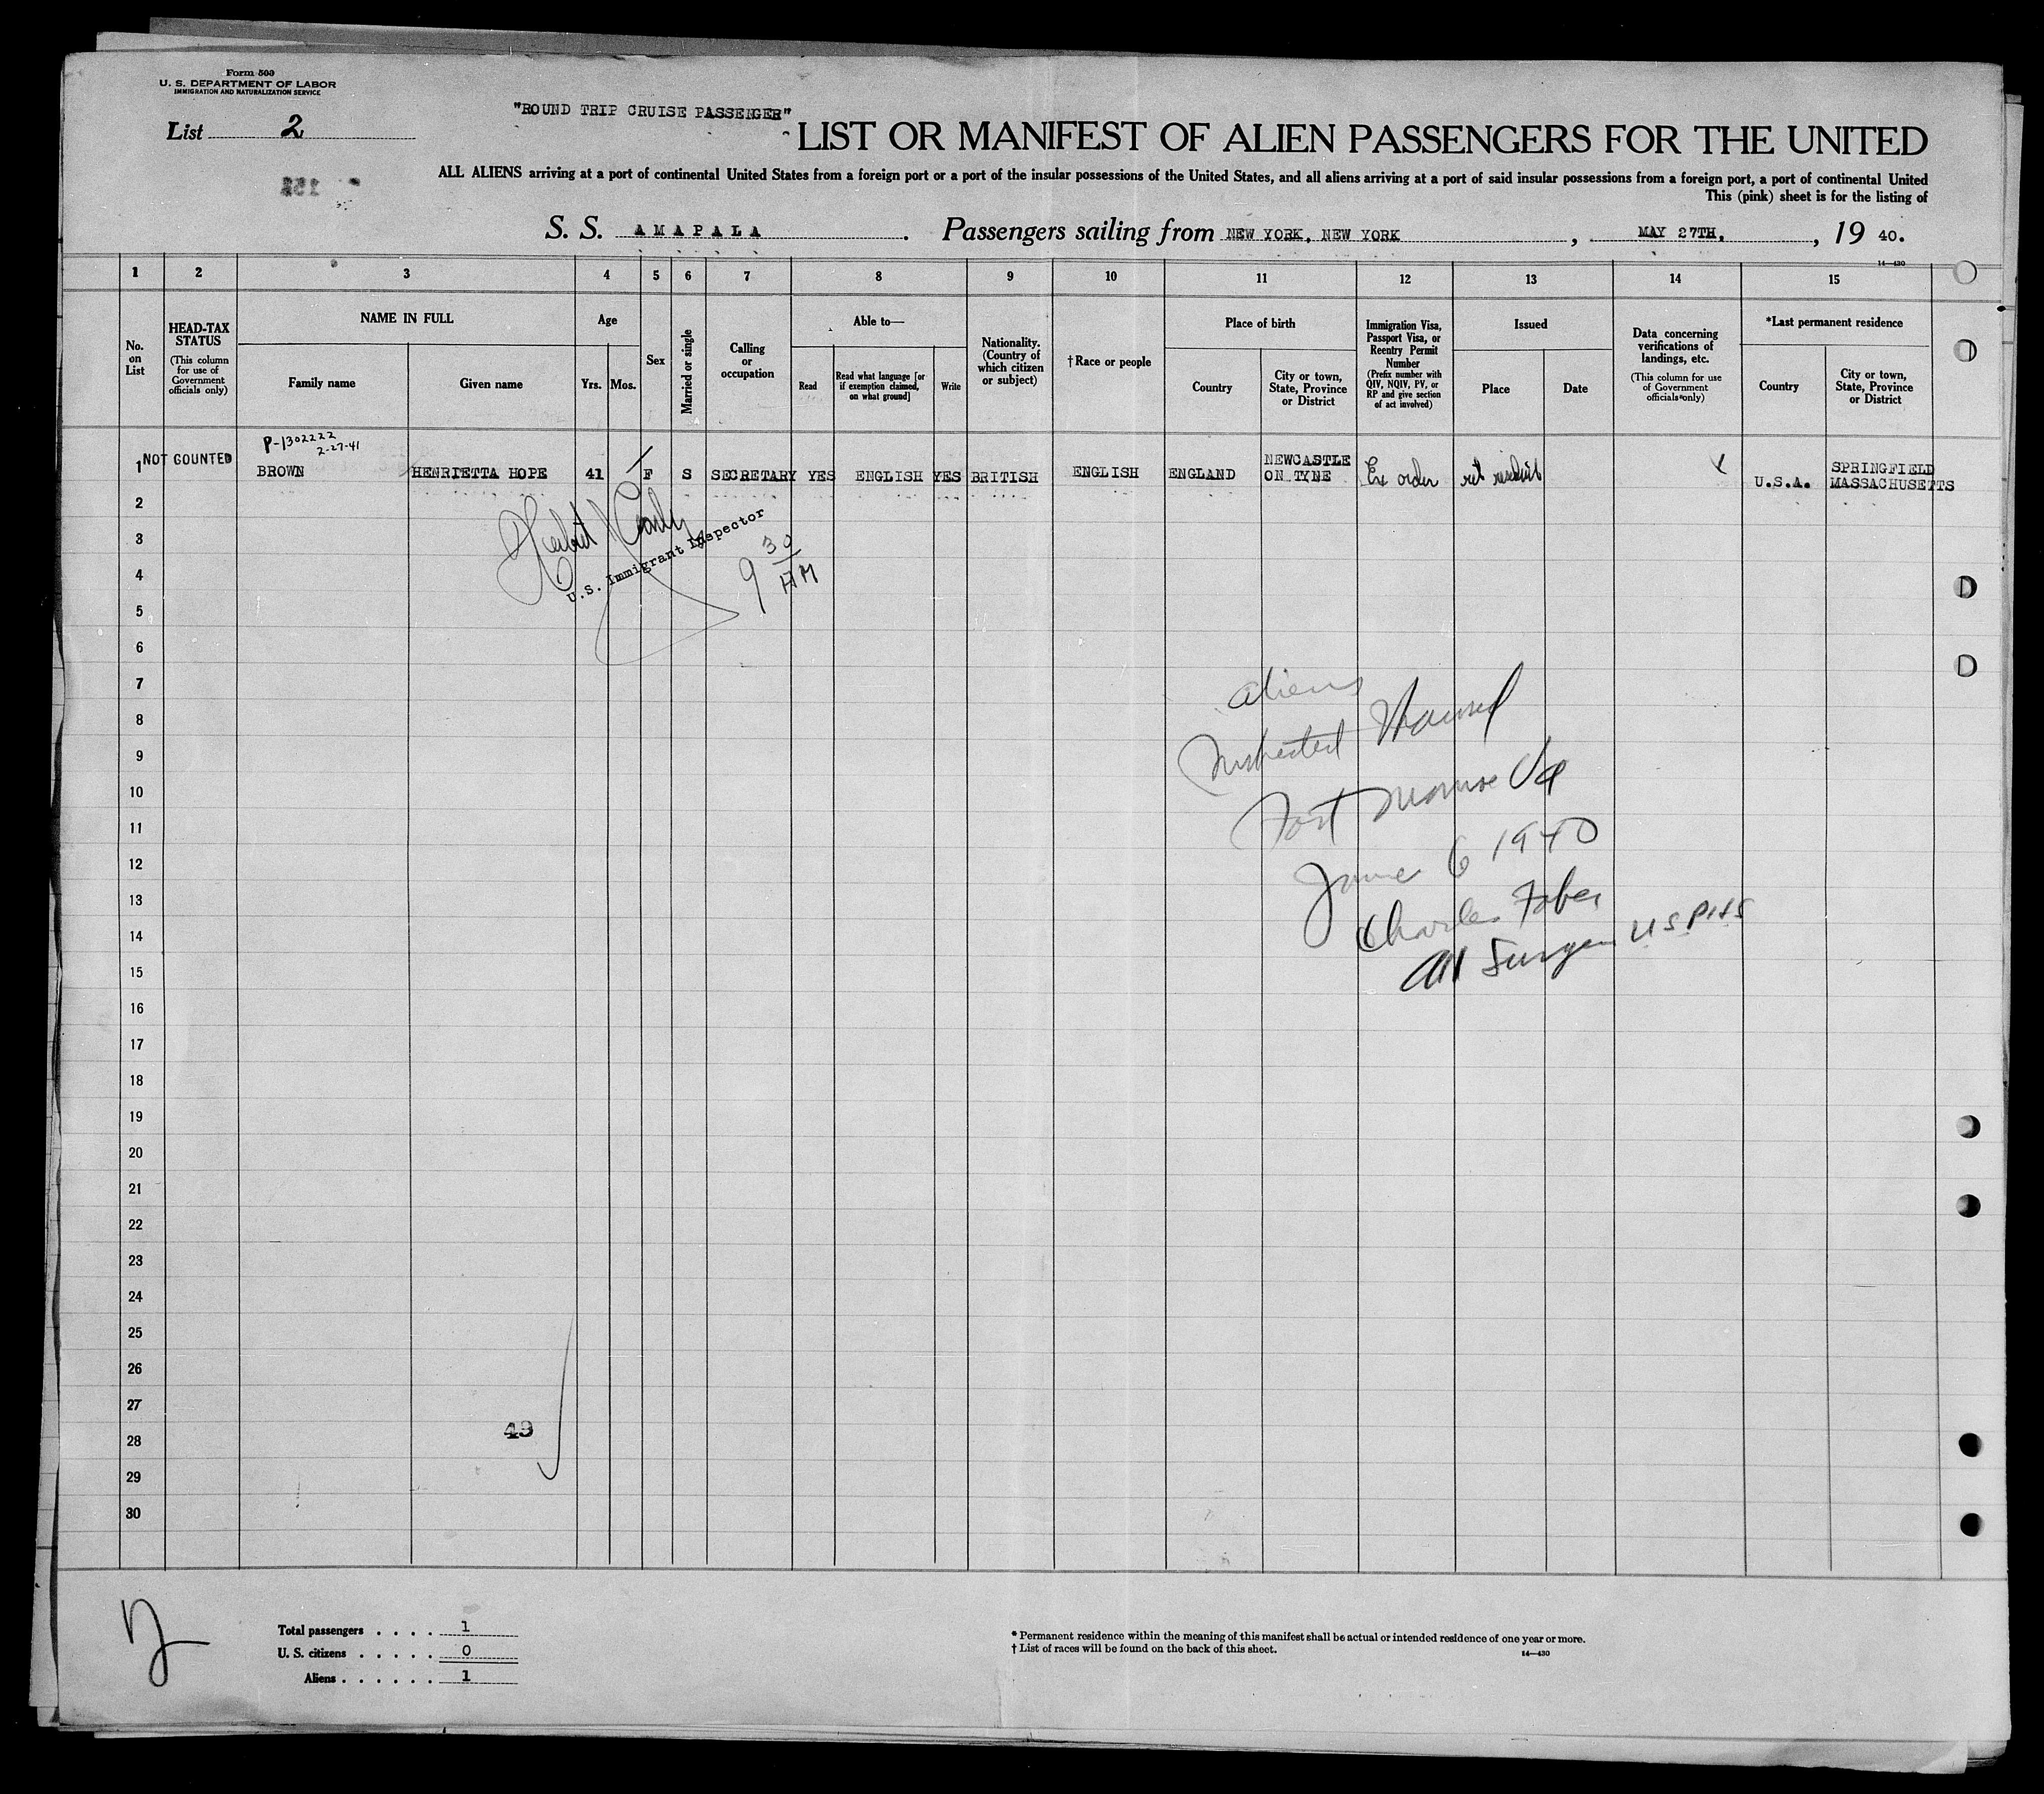 Form 500
U. S. DEPARTMENT OF LABOR
IMMIGRATION AND NATURALIZATION SERVICE
List 2
"ROUND TRIP CRUISE PASSENGER"
LIST OR MANIFEST OF ALIEN PASSENGERS FOR THE UNITED
ALL ALIENS arriving at a port of continental United States from a foreign port or a port of the insular possessions of the United States, and all aliens arriving at a port of said insular possessions from a foreign port, a port of continental United
This (pink) sheet is for the listing of
S. S. AMAPALA. Passengers sailing from NEW YORK, NEW YORK, MAY 27TH., 19 40.
14—430
1 2 3 4 5 6 7 8 9 10 11 12 13 14 15
No. on List
HEAD-TAX STATUS
(This column for use of Government officials only)
NAME IN FULL
Family name
Given name
Age
Yrs. Mos.
Sex
Married or single
Calling or occupation
Able to—
Read
Read what language [or if exemption claimed, on what ground]
Write
Nationality. (Country of which citizen or subject)
† Race or people
Place of birth
Country
City or town, State, Province or District
Immigration Visa, Passport Visa, or Reentry Permit Number
(Prefix number with QIV, NQIV, PV, or RP and give section of act involved)
Issued
Place
Date
Data concerning verifications of landings, etc.
(This column for use of Government officials only)
*Last permanent residence
Country
City or town, State, Province or District
P-1302222
2-27-41
1 NOT COUNTED BROWN HENRIETTA HOPE 41 F S SECRETARY YES ENGLISH YES BRITISH ENGLISH ENGLAND NEWCASTLE ON TYNE Ex order ret resident U.S.A. SPRINGFIELD MASSACHUSETTS
2
3
U.S. Immigrant Inspector
9 30 AM
4
5
6
7
aliens
8
Inspected & Passed
9
10
Fort Monroe Va
11
12
June 6 1940
13
Charles Faber
14
Surgeon USPHS
15
16
17
18
19
20
21
22
23
24
25
26
27
28
49
29
30
Total passengers . . . . 1
U. S. citizens . . . . . 0
Aliens . . . . . . 1
* Permanent residence within the meaning of this manifest shall be actual or intended residence of one year or more.
† List of races will be found on the back of this sheet.
14—430